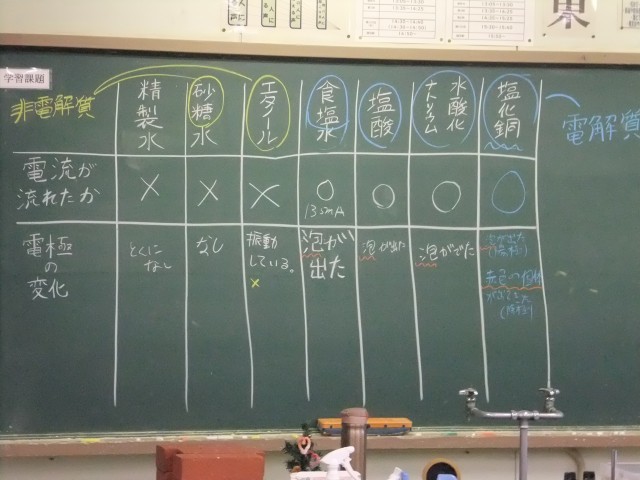 学習課題
非電解質
精製水
砂糖水
エタノール
食塩水
塩酸
水酸化
ナトリウム
塩化銅
電解質
電流が
流れたか
×
×
×
○
135mA
○
○
○
電極の
変化
とくに
なし
なし
振動
している。
×
泡が
出た
泡が出た
泡がでた
赤色の固体